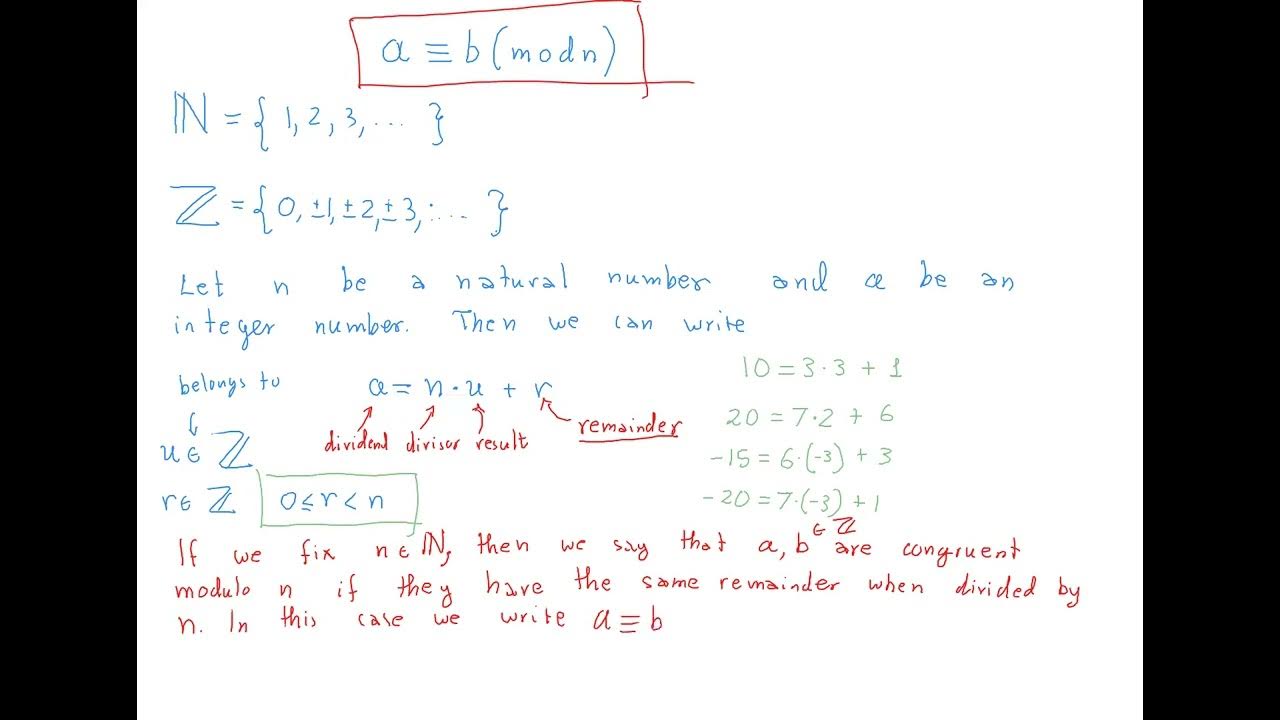 a ≡ b (mod n)
ℕ = { 1, 2, 3, ... }
ℤ = { 0, ±1, ±2, ±3, .... }
Let n be a natural number and a be an
integer number. Then we can write
belongs to
a = n · u + r
dividend divisor result remainder
u ∈ ℤ
r ∈ ℤ 0 ≤ r < n
10 = 3·3 + 1
20 = 7·2 + 6
-15 = 6·(-3) + 3
-20 = 7·(-3) + 1
If we fix n ∈ ℕ, then we say that a, b ∈ ℤ are congruent
modulo n if they have the same remainder when divided by
n. In this case we write a ≡ b